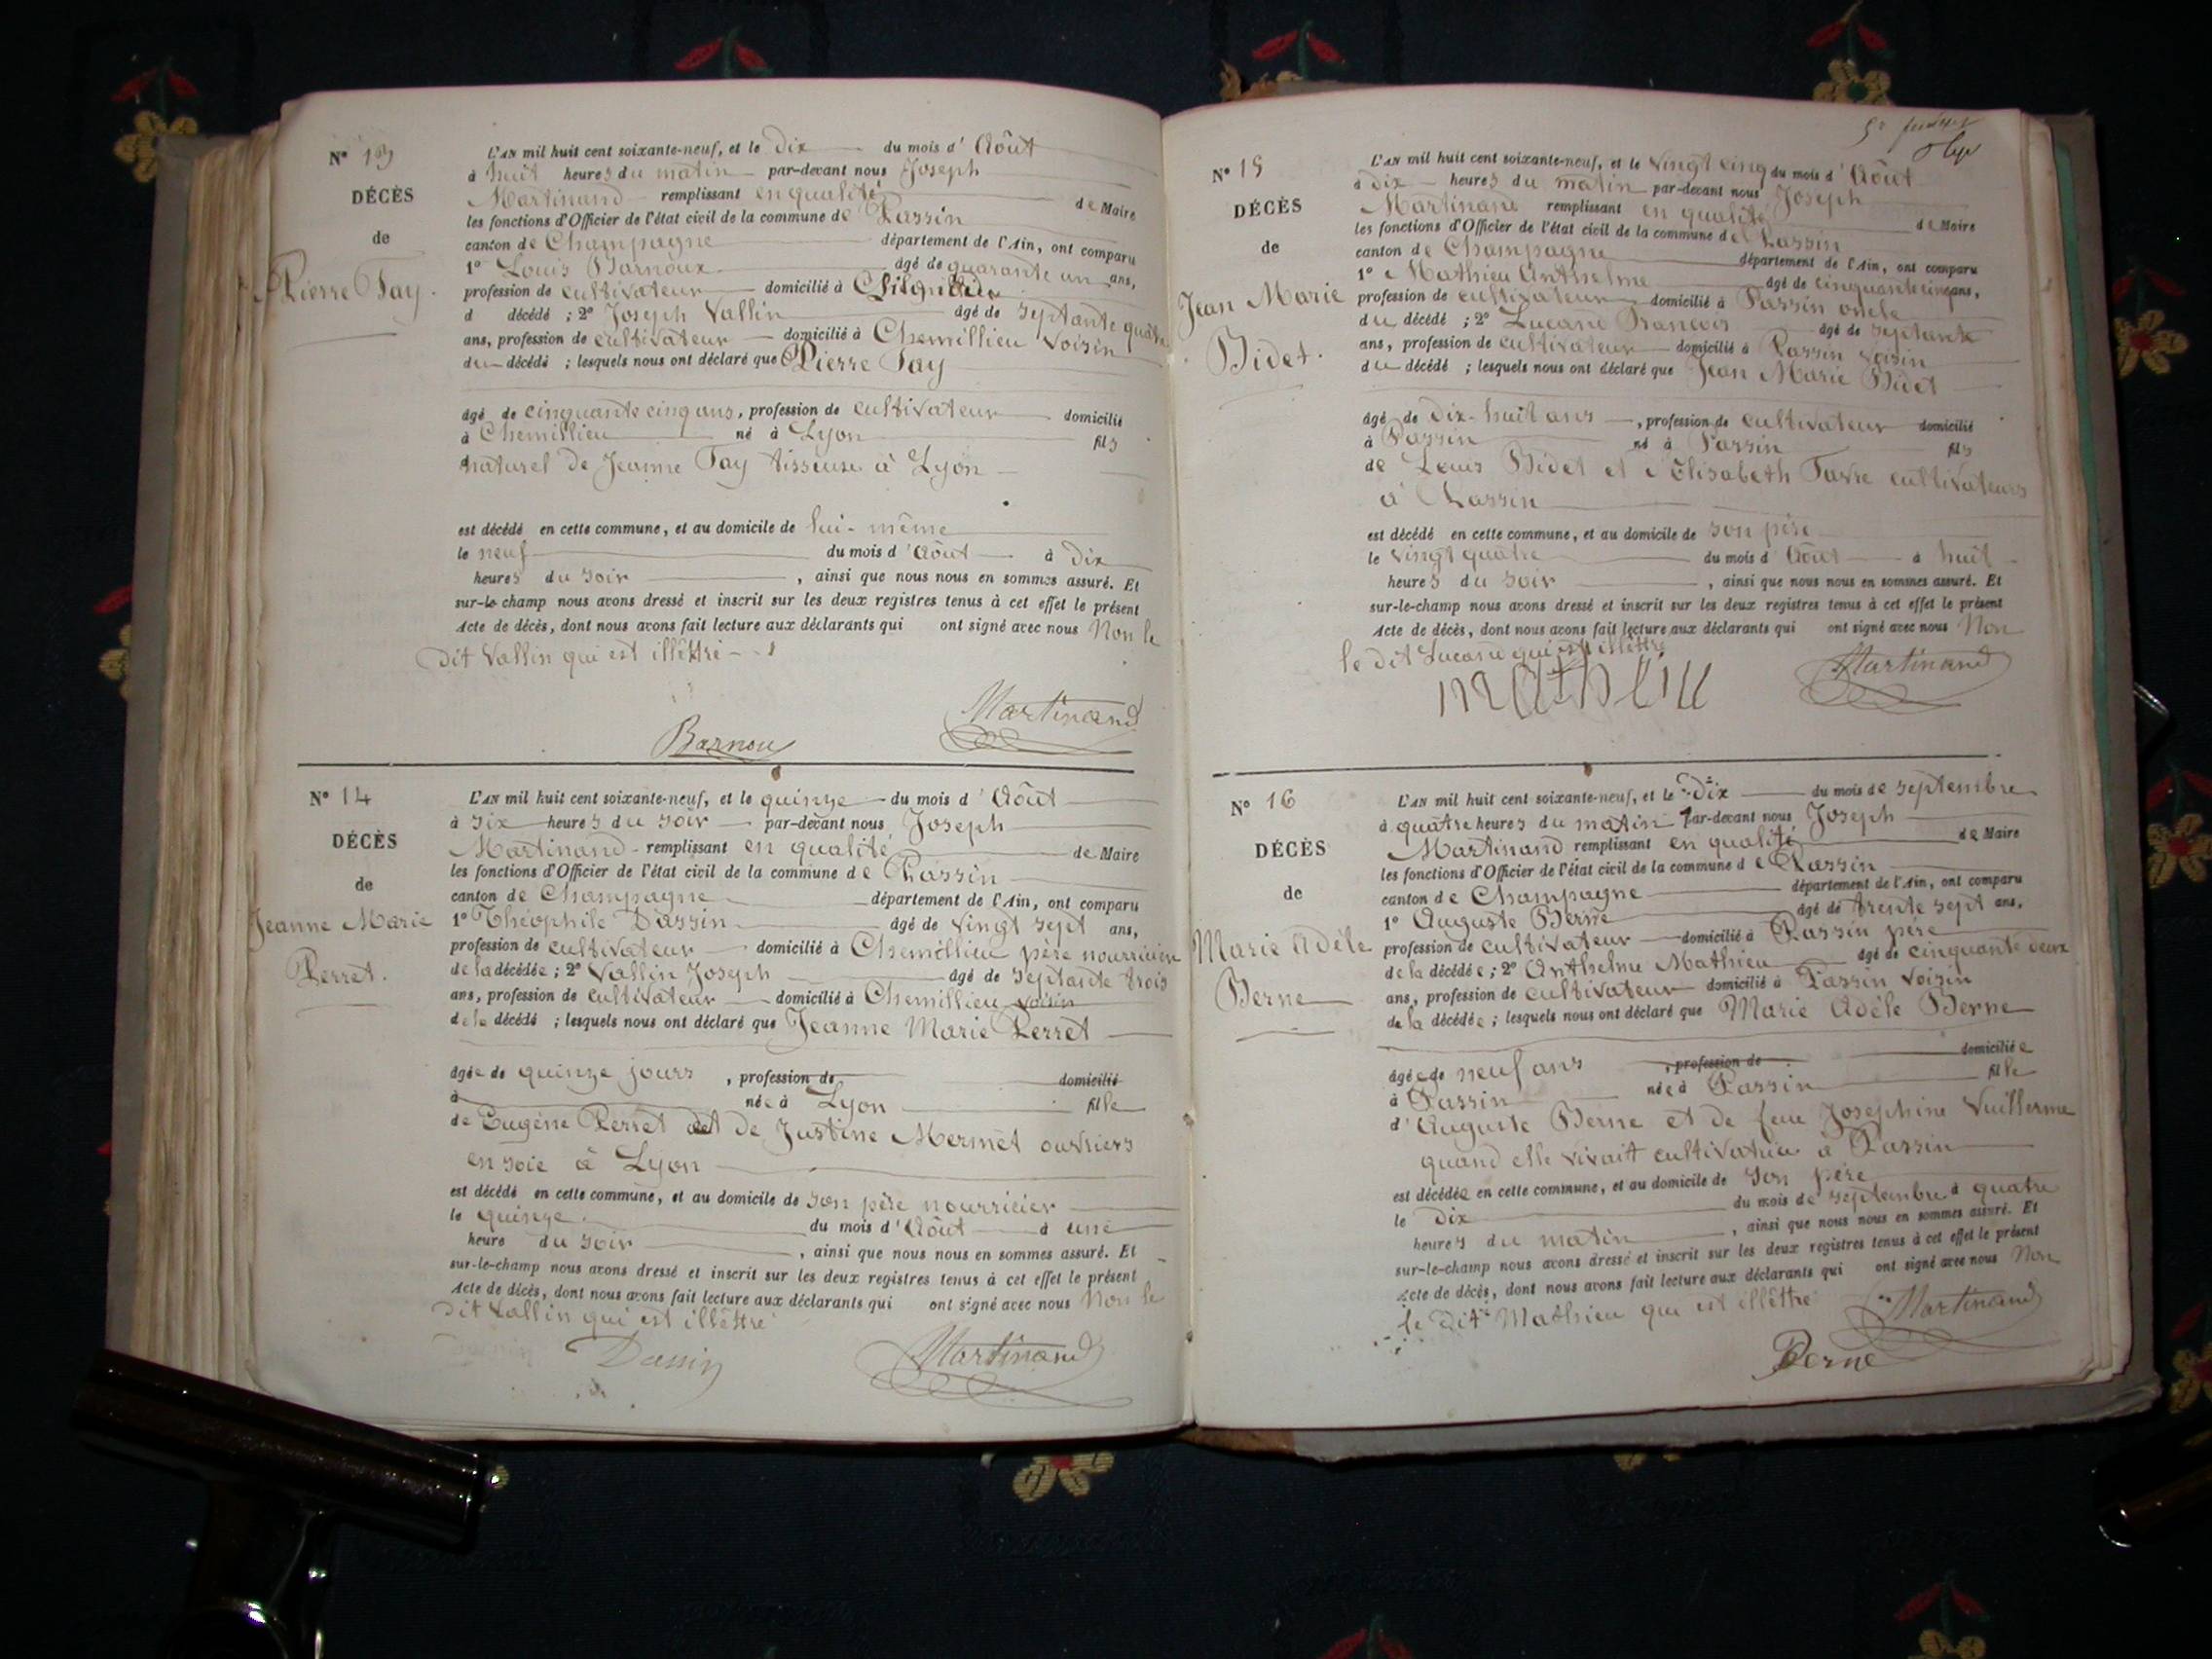 N° 13
DÉCÈS
de
Pierre Fay.
L'AN mil huit cent soixante-neuf, et le dix du mois d'Août
à huit heures du matin par-devant nous Joseph
Martinand remplissant en qualité de Maire
les fonctions d'Officier de l'état civil de la commune de Passin
canton de Champagne département de l'Ain, ont comparu
1° Louis Barnoux âgé de quarante un ans,
profession de cultivateur domicilié à
d décédé ; 2° Joseph Vallin âgé de septante quatre
ans, profession de cultivateur domicilié à Chemillieu voisin
du décédé ; lesquels nous ont déclaré que Pierre Fay
âgé de cinquante cinq ans, profession de cultivateur domicilié
à Chemillieu né à Lyon fils
naturel de Jeanne Fay tisseuse à Lyon
est décédé en cette commune, et au domicile de lui-même
le neuf du mois d'Août à dix
heures du soir , ainsi que nous nous en sommes assuré. Et
sur-le-champ nous avons dressé et inscrit sur les deux registres tenus à cet effet le présent
Acte de décès, dont nous avons fait lecture aux déclarants qui ont signé avec nous Non le
dit Vallin qui est illêttré
Barnou Martinand
N° 14
DÉCÈS
de
Jeanne Marie
Perret.
L'AN mil huit cent soixante-neuf, et le quinze du mois d'Août
à six heures du soir par-devant nous Joseph
Martinand remplissant en qualité de Maire
les fonctions d'Officier de l'état civil de la commune de Passin
canton de Champagne département de l'Ain, ont comparu
1° Théophile Dassin âgé de vingt sept ans,
profession de cultivateur domicilié à Chemillieu père nourricier
de la décédée ; 2° Vallin Joseph âgé de septante trois
ans, profession de cultivateur domicilié à Chemillieu voisin
de la décédé ; lesquels nous ont déclaré que Jeanne Marie Perret
âgée de quinze jours , profession de domicilié
à née à Lyon fille
de Eugène Perret et de Justine Mermet ouvriers
en soie à Lyon
est décédé en cette commune, et au domicile de son père nourricier
le quinze du mois d'Août à une
heure du soir , ainsi que nous nous en sommes assuré. Et
sur-le-champ nous avons dressé et inscrit sur les deux registres tenus à cet effet le présent
Acte de décès, dont nous avons fait lecture aux déclarants qui ont signé avec nous Non le
dit Vallin qui est illêttré
Dassin Martinand
N° 15
DÉCÈS
de
Jean Marie
Bidet.
L'AN mil huit cent soixante-neuf, et le vingt cinq du mois d'Août
à dix heures du matin par-devant nous Joseph
Martinand remplissant en qualité de Maire
les fonctions d'Officier de l'état civil de la commune de Passin
canton de Champagne département de l'Ain, ont comparu
1° Mathieu Anthelme âgé de cinquante cinq ans,
profession de cultivateur domicilié à Passin oncle
du décédé ; 2° François âgé de septante
ans, profession de cultivateur domicilié à Passin voisin
du décédé ; lesquels nous ont déclaré que Jean Marie Bidet
âgé de dix-huit ans , profession de cultivateur domicilié
à Passin né à Passin fils
de Louis Bidet et d'Elisabeth Favre cultivateurs
à Passin
est décédé en cette commune, et au domicile de son père
le vingt quatre du mois d'Août à huit
heures du soir , ainsi que nous nous en sommes assuré. Et
sur-le-champ nous avons dressé et inscrit sur les deux registres tenus à cet effet le présent
Acte de décès, dont nous avons fait lecture aux déclarants qui ont signé avec nous Non
le dit qui est illêttré
mathieu Martinand
N° 16
DÉCÈS
de
Marie Adèle
Berne
L'AN mil huit cent soixante-neuf, et le dix du mois de septembre
à quatre heures du matin par-devant nous Joseph
Martinand remplissant en qualité de Maire
les fonctions d'Officier de l'état civil de la commune de Passin
canton de Champagne département de l'Ain, ont comparu
1° Auguste Berne âgé de trente sept ans,
profession de cultivateur domicilié à Passin père
de la décédée ; 2° Anthelme Mathieu âgé de cinquante deux
ans, profession de cultivateur domicilié à Passin voisin
de la décédée ; lesquels nous ont déclaré que Marie Adèle Berne
âgée de neuf ans , profession de domiciliée
à Passin née à Passin fille
d'Auguste Berne et de feue Josephine Vuillerme
quand elle vivait cultivatrice à Passin
est décédée en cette commune, et au domicile de son père
le dix du mois de septembre à quatre
heures du matin , ainsi que nous nous en sommes assuré. Et
sur-le-champ nous avons dressé et inscrit sur les deux registres tenus à cet effet le présent
Acte de décès, dont nous avons fait lecture aux déclarants qui ont signé avec nous Non
le dit Mathieu qui est illêttré Martinand
Berne